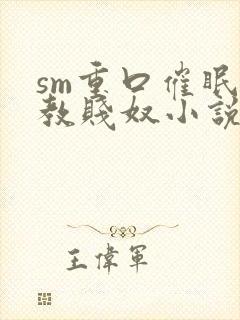 sm重口催眠
教賤奴小說
王偉軍